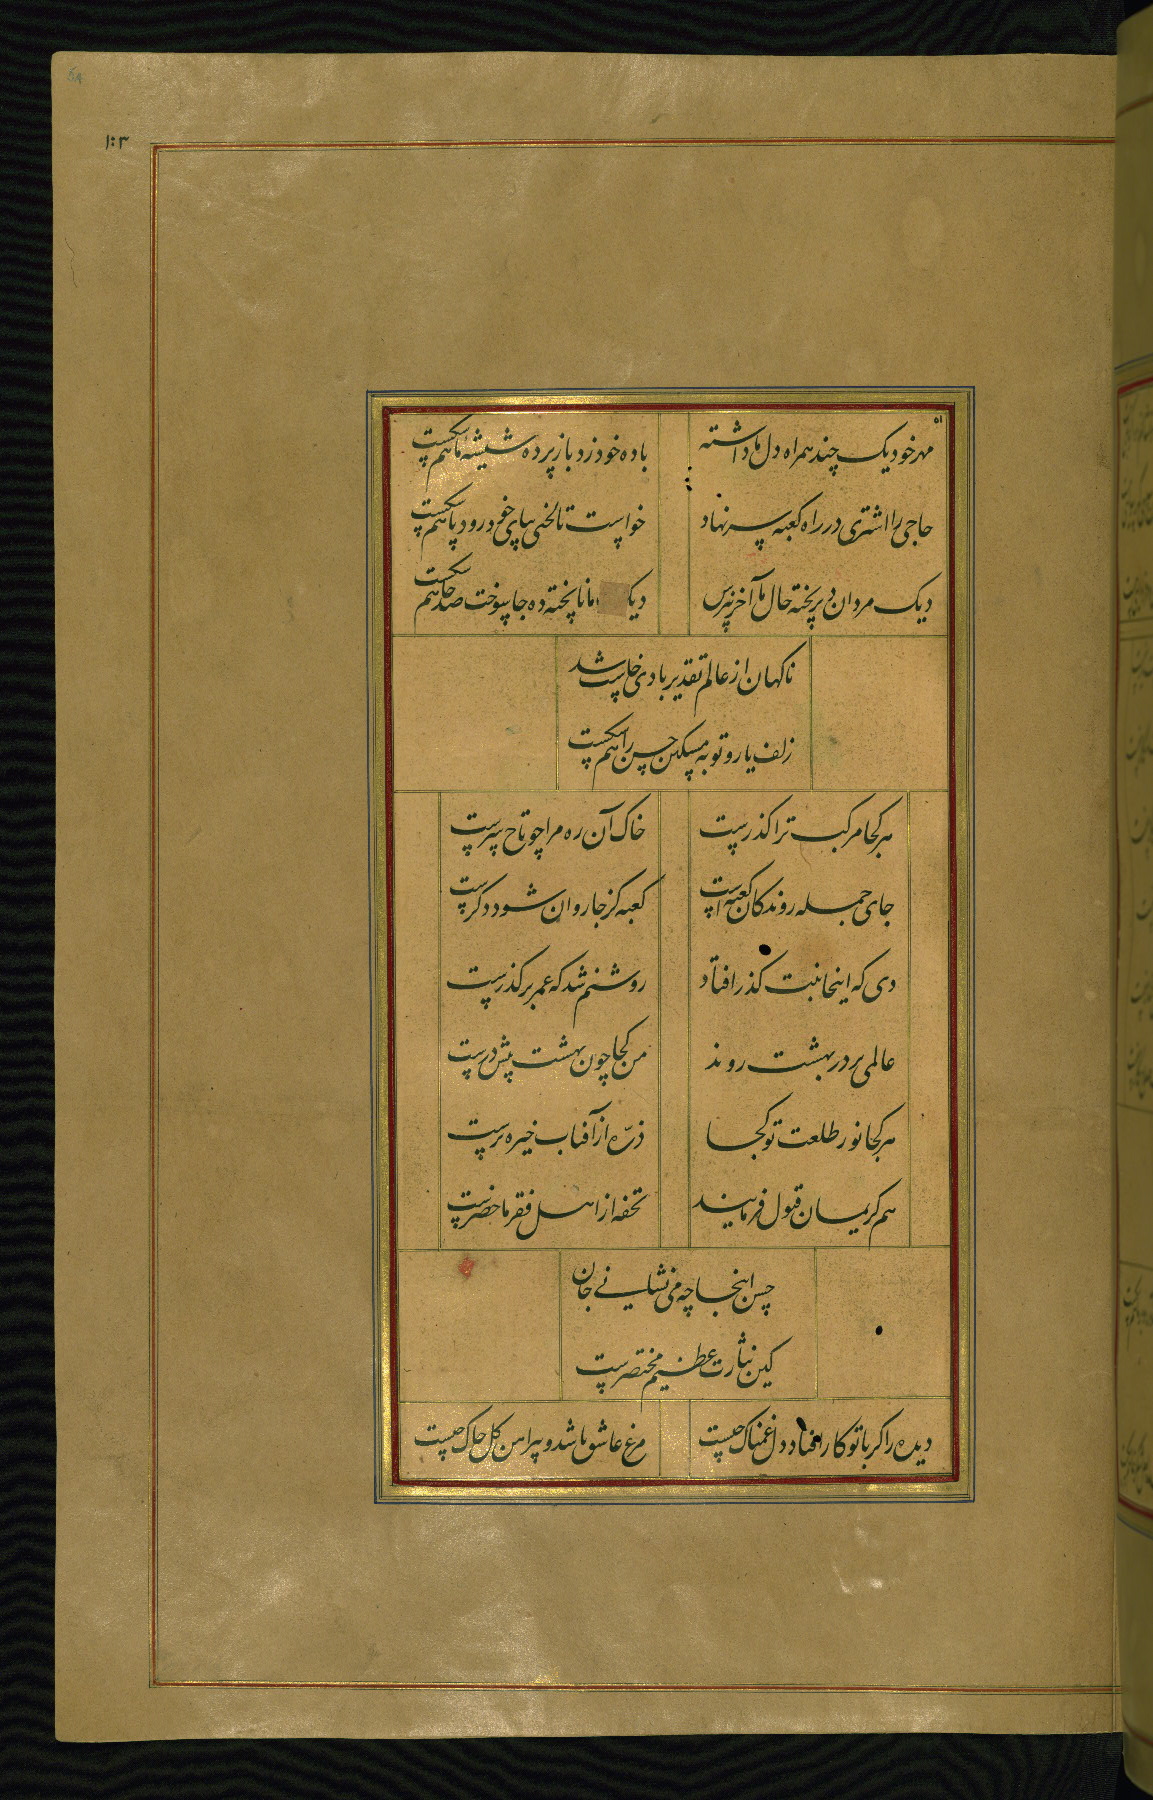 ۱۰۳
مهر خود یک چند همراه دل ما داشته
باده خود زد باز پرده شیشه ما هم شکست
حاجی را اشتری در راه کعبه سر نهاد
خواست تا لختی بپای خود رود پا هم شکست
دیک مردان دیر پخته حال ما آخر بپرس
دیک ما ناپخته ده جا بسوخت صد جا هم شکست
ناکهان از عالم تقدیر بادی خاست شد
زلف یار و توبه مسکین حسن را هم شکست
هر کجا مرکب ترا کذرست
خاک آن ره مرا چو تاج سرست
جای جمله روندکان کعبه است
کعبه کز جا روان شود دکرست
دی که اینجانبت کذر افتاد
روشنم شد که عمر بر کذرست
عالمی بر در بهشت روند
من کجا چون بهشت پیش درست
هر کجا نور طلعت تو کجا
ذره از آفتاب خیره ترست
هم کریمان قبول فرمایند
تحفه از اهل فقر ما حضرست
حسن اینجا چه می نشانی جان
کین نثارت عظیم مختصرست
دیده را کر با تو کار افتاد دل غمناک چیست
مرغ عاشق باشد و پیراهن کل چاک چیست